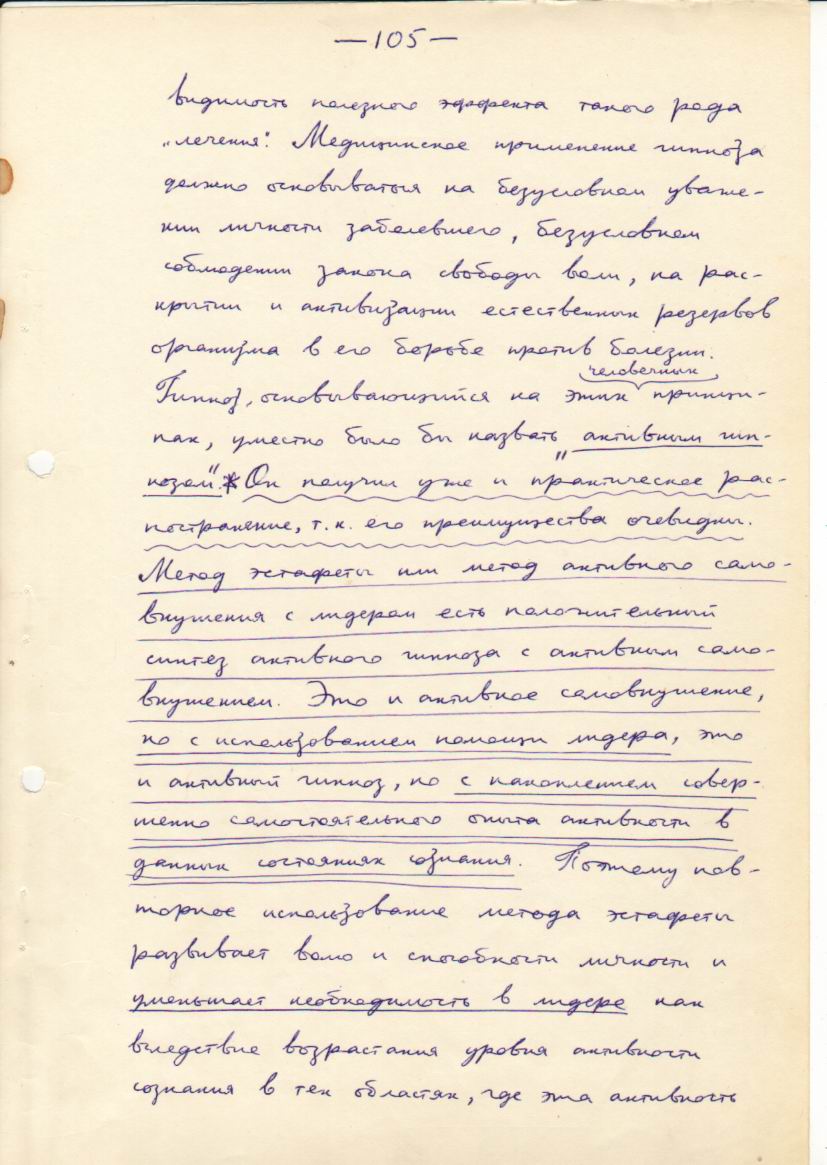 —105—
видимость полезного эффекта такого рода
„лечения". Медицинское применение гипноза
должно основываться на безусловном уваже-
нии личности заболевшего, безусловном
соблюдении закона свободы воли, на рас-
крытии и активизации естественных резервов
организма в его борьбе против болезни.
человечных
Гипноз, основывающийся на этих принци-
пах, уместно было бы назвать „активным гип-
нозом".* Он получил уже и практическое рас-
постранение, т.к. его преимущества очевидны.
Метод эстафеты или метод активного само-
внушения с лидером есть положительный
синтез активного гипноза с активным само-
внушением. Это и активное самовнушение,
но с использованием помощи лидера, это
и активный гипноз, но с накоплением совер-
шенно самостоятельного опыта активности в
данных состояниях сознания. Поэтому пов-
торное использование метода эстафеты
развивает волю и способности личности и
уменьшает необходимость в лидере как
вследствие возрастания уровня активности
сознания в тех областях, где эта активность